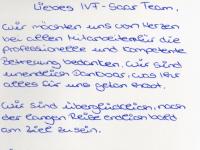 Liebes IVF-Saar Team,
wir möchten uns von Herzen
bei allen Mitarbeitern für die
professionelle und kompetente
Betreuung bedanken. Wir sind
unendlich dankbar, was Ihr
alles für uns getan habt.
Wir sind überglücklich, nach
der langen Reise endlich bald
am Ziel zu sein.